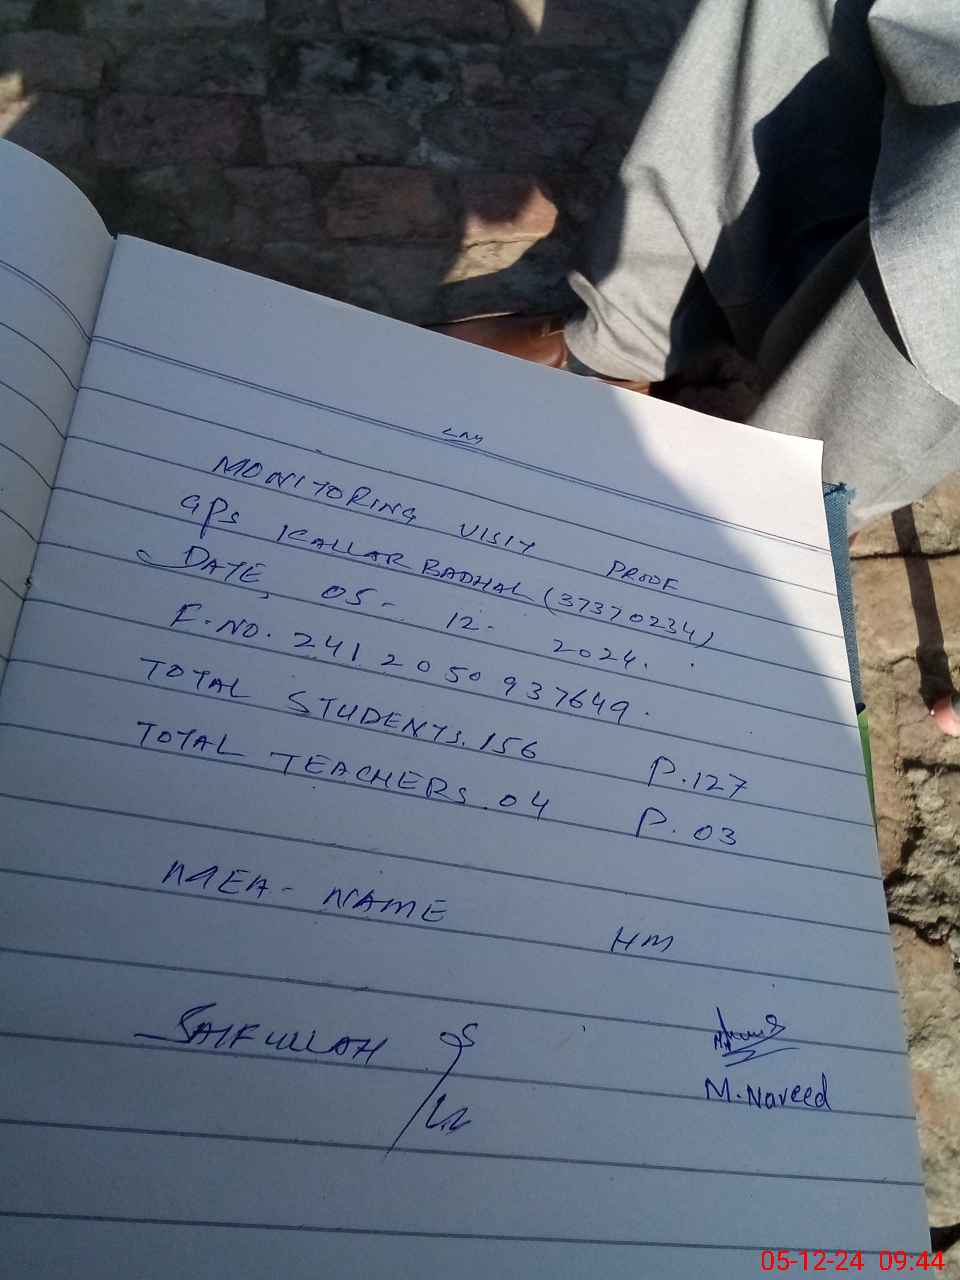 MONITORING VISIT PROOF
GPS KALLAR BADHAL (37370234)
DATE, 05- 12- 2024.
F.NO. 241 205 0937649.
TOTAL STUDENTS. 156 P.127
TOTAL TEACHERS. 04 P. 03
MEA- NAME HM
SAIFULLAH
M.Naveed
05-12-24 09:44